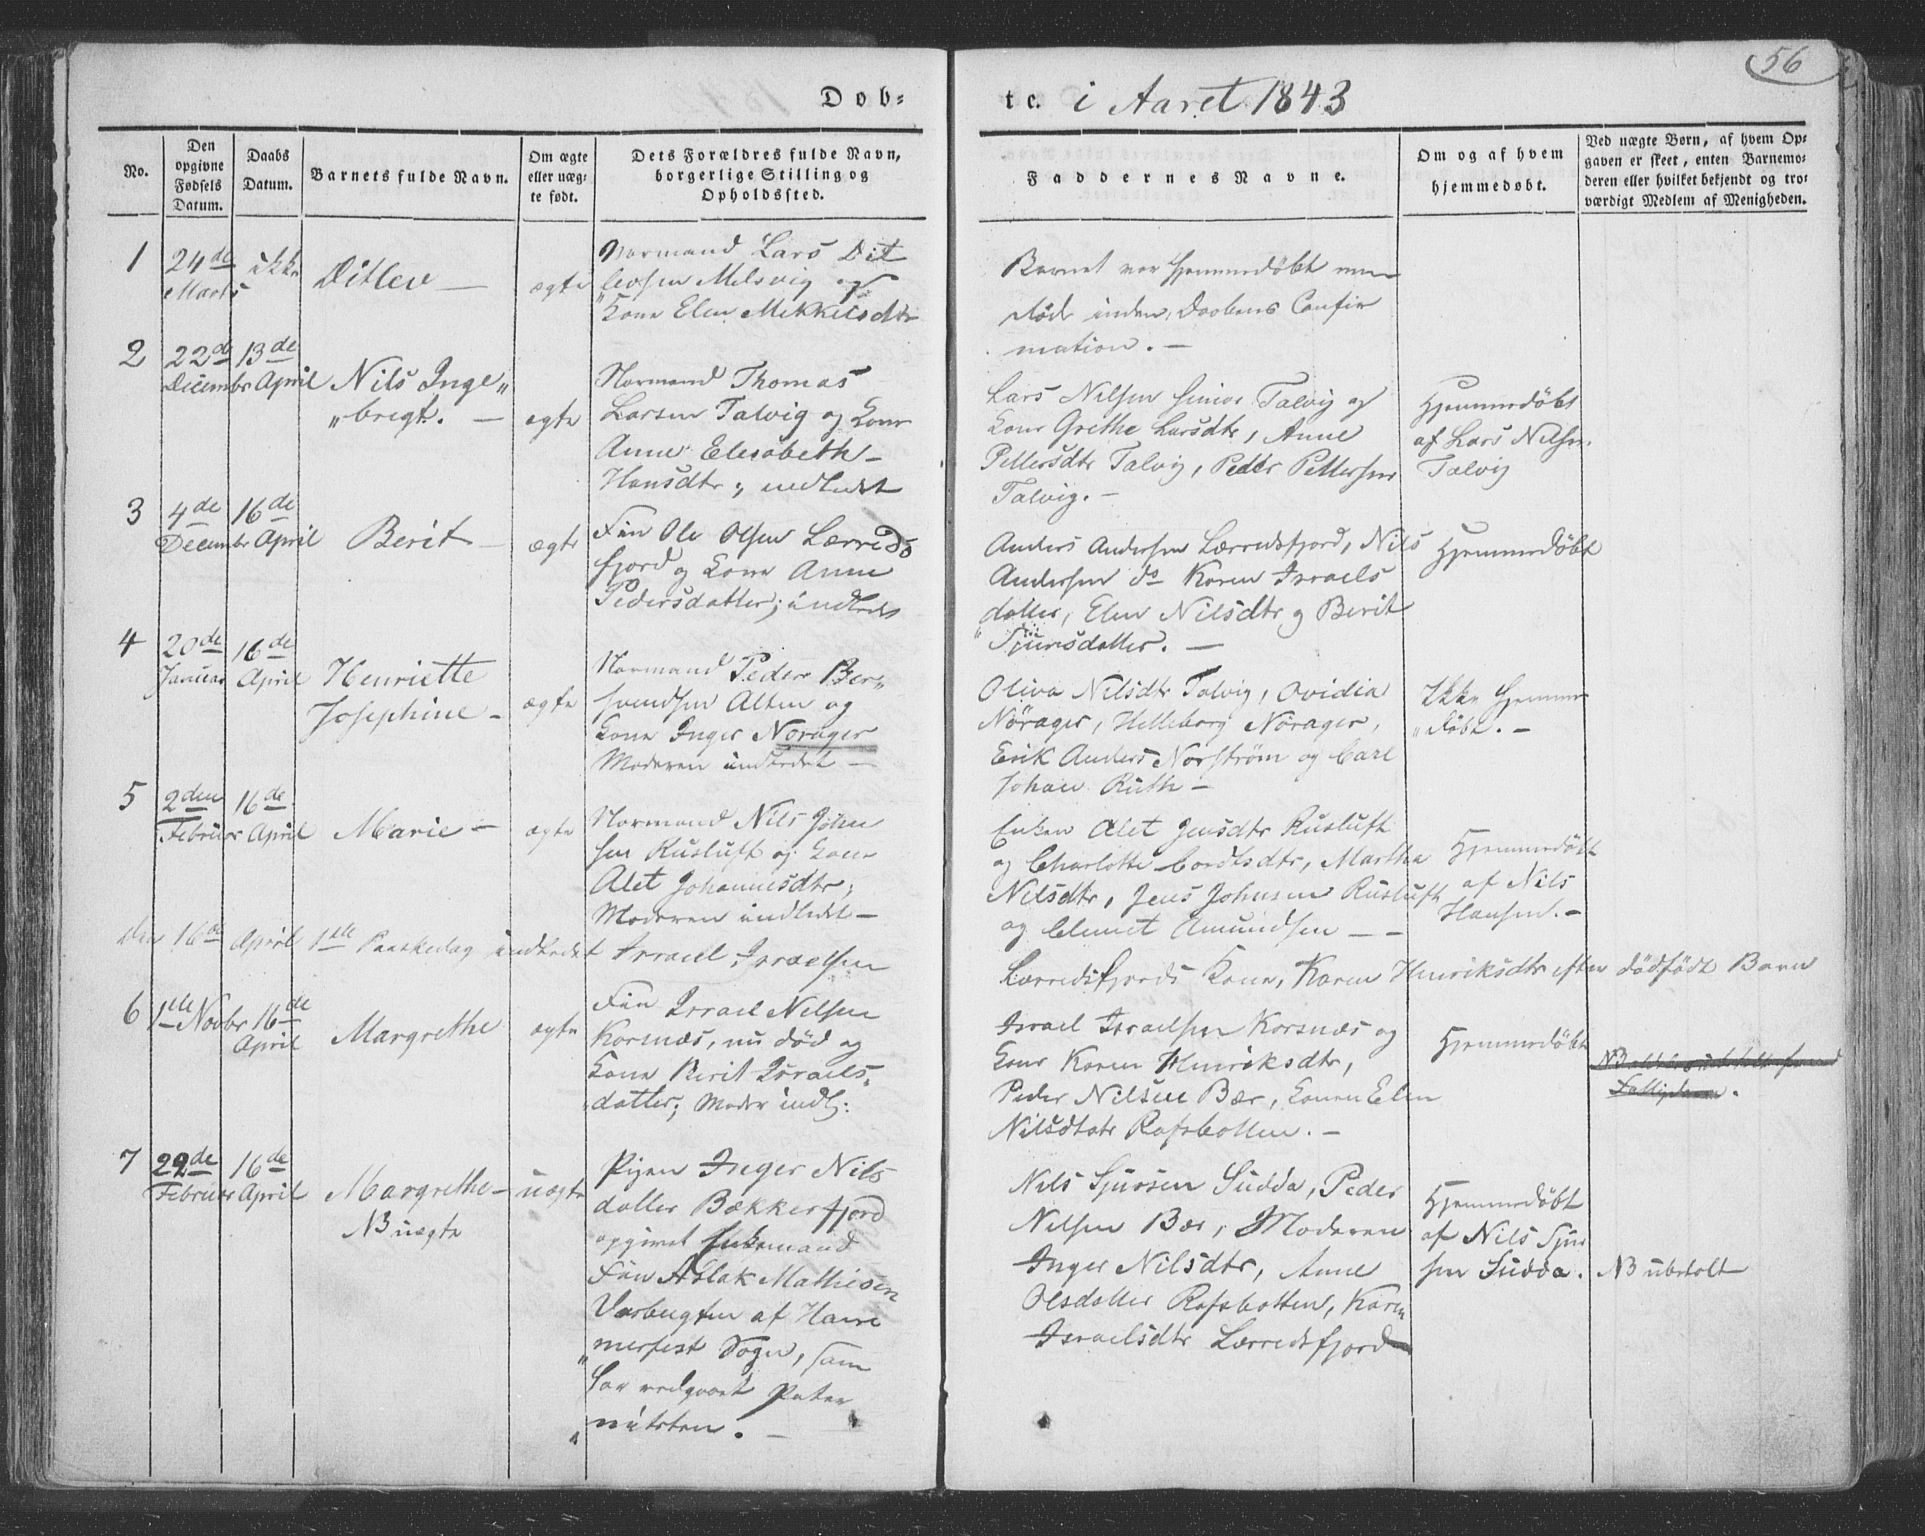 56
Døb-
te. i Aaret 1843
No.
Den opgivne Fødsels Datum.
Daabs Datum.
Barnets fulde Navn.
Om ægte eller uæg-
te født.
Dets Forældres fulde Navn,
borgerlige Stilling og
Opholdssted.
Faddernes Navne.
Om og af hvem
hjemmedøbt.
Ved uægte Børn, af hvem Op-
gaven er skeet, enten Barnemo-
deren eller hvilket bekjendt og tro-
værdigt Medlem af Menigheden.
1
24de
Marts
ikke
Ditlev —
ægte
Normand Lars Dit
levsen Melsvig og
Kone Elen Mikkelsdtr
Barnet var hjemmedøbt men
døde inden Daabens Confir
mation. —
2
22de
Decembr
13de
April
Nils Inge„
„brigt. —
ægte
Normand Thomas
Larsen Talvig og Kone
Anne Elisabeth
Hansdtr; indledet
Lars Nilsen senior Talvig og
Kone Grethe Larsdtr, Anne
Pettersdtr Talvig, Peder Pettersen
Talvig. —
Hjemmedøbt
af Lars Nilsen
Talvig
3
4de
Decembr
16de
April
Berit —
ægte
Fin Ole Olsen Lærreds
fjord og Kone Anne
Pedersdatter; indledt
Anders Andersen Lærredsfjord, Nils
Andersen do Karen Israels
datter, Elen Nilsdtr og Berit
Sjursdatter. —
Hjemmedøbt
4
20de
Januar
16de
April
Henriette
Josephine —
ægte
Normand Peder Ber„
svendsen Alten og
Kone Inger Norager
Moderen indledet —
Oliva Nilsdtr Talvig, Ovidia
Nørager, Helleborg Nørager,
Erik Anders Norstrøm og Carl
Johan Ruth —
Ikke hjemme
„døbt. —
5
2den
Februar
16de
April
Marie —
ægte
Normand Nils John
sen Rusluft og Kone
Alet Johannesdtr;
Moderen indledet —
Enken Alet Jensdtr Rusluft
og Charlotte Cordtsdtr, Martha
Nilsdtr, Jens Johnsen Rusluft
og Clemet Amundsen — —
Hjemmedøbt
af Nils
Hansen. —
den 16de April 1ste Paaskedag indledet Israel Israelsen
Lærredsfjords Kone, Karen Henriksdtr efter dødfødt Barn
6
1ste Novbr
16de
April
Margrethe
ægte
Fin Israel Nilsen
Korsnæs, nu død og
Kone Berit Israels„
datter; Moder indlt:
Israel Israelsen Korsnæs og
Kone Karen Henriksdtr,
Peder Nilsen Bær, Konen Elen
Nilsdtatr Rafsbotten. —
Hjemmedøbt
7
22de
Februar
16de
April
Margrethe —
NB uægte
uægte
Pigen Inger Nils
datter Bækkerfjord
opgivet Enkemand
Fin Aslak Mathisen
Varbugten af Ham
„merfest Sogn, som
har vedgaaet Pater
„niteten. —
Nils Sjursen Sudda, Peder
Nilsen Bær, Moderen
Inger Nilsdtr, Anne
Olsdatter Rafsbotten, Karen
Israelsdtr Lærredsfjord
Hjemmedøbt
af Nils Sjur
sen Sudda.
NB ubetalt